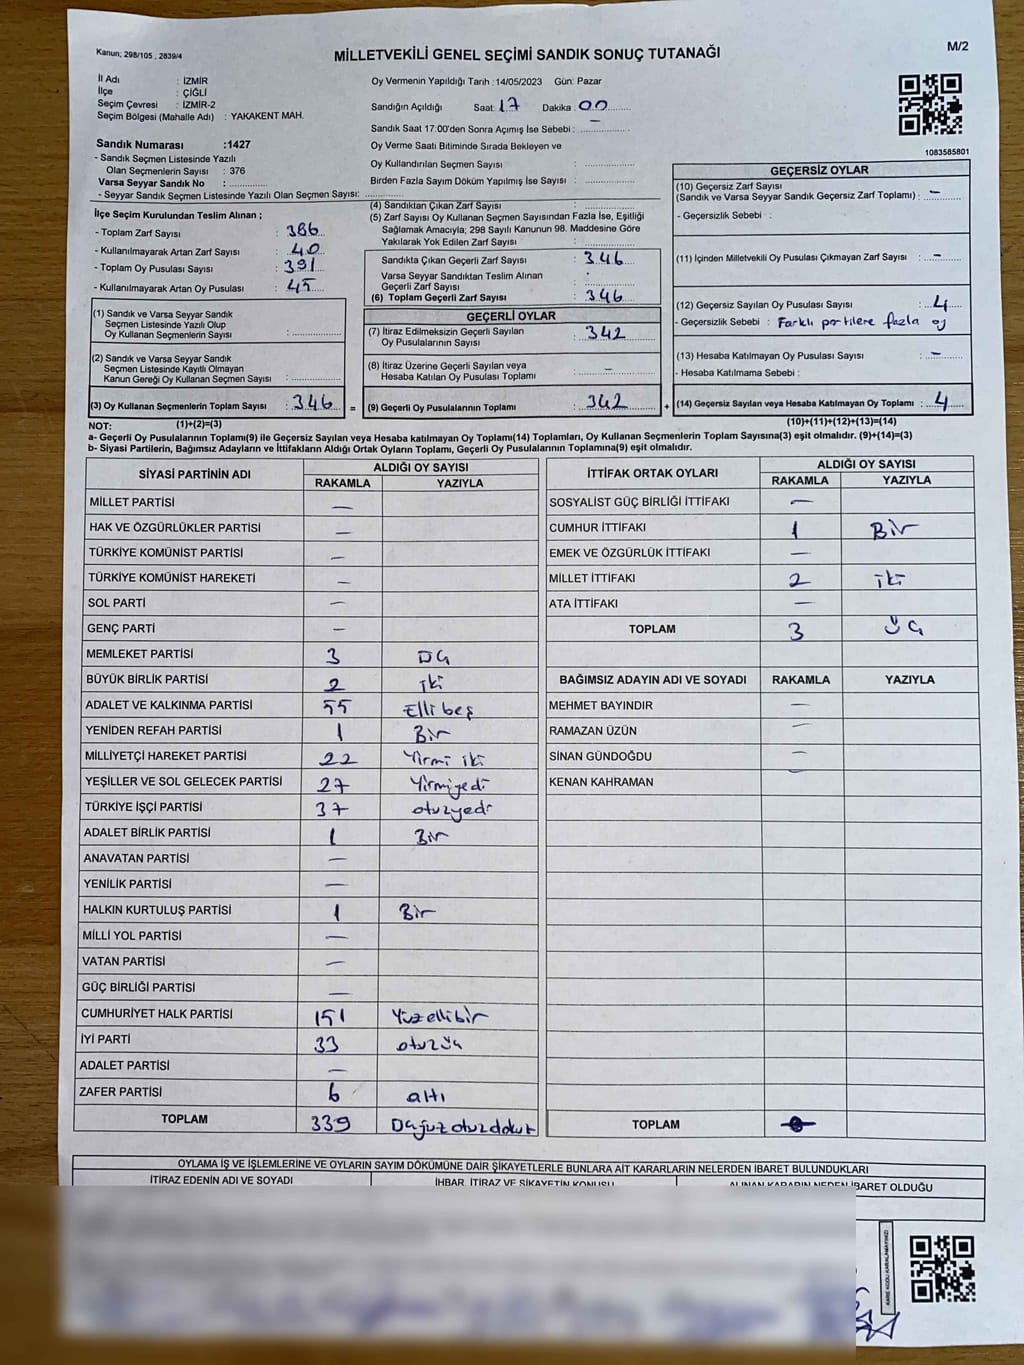 Kanun; 298/105 , 2839/4
MİLLETVEKİLİ GENEL SEÇİMİ SANDIK SONUÇ TUTANAĞI
M/2
İl Adı : İZMİR
İlçe : ÇİĞLİ
Seçim Çevresi : İZMİR-2
Seçim Bölgesi (Mahalle Adı) : YAKAKENT MAH.
Oy Vermenin Yapıldığı Tarih :14/05/2023 Gün: Pazar
Sandığın Açıldığı Saat: 17 Dakika 00
Sandık Saat 17:00'den Sonra Açımış İse Sebebi : —
Oy Verme Saati Bitiminde Sırada Bekleyen ve
Oy Kullandırılan Seçmen Sayısı :
Birden Fazla Sayım Döküm Yapılmış İse Sayısı :
1083585801
Sandık Numarası :1427
- Sandık Seçmen Listesinde Yazılı
Olan Seçmenlerin Sayısı : 376
Varsa Seyyar Sandık No :
- Seyyar Sandık Seçmen Listesinde Yazılı Olan Seçmen Sayısı:
İlçe Seçim Kurulundan Teslim Alınan ;
- Toplam Zarf Sayısı : 386
- Kullanılmayarak Artan Zarf Sayısı : 40
- Toplam Oy Pusulası Sayısı : 391
- Kullanılmayarak Artan Oy Pusulası : 45
(1) Sandık ve Varsa Seyyar Sandık
Seçmen Listesinde Yazılı Olup
Oy Kullanan Seçmenlerin Sayısı :
(2) Sandık ve Varsa Seyyar Sandık
Seçmen Listesinde Kayıtlı Olmayan
Kanun Gereği Oy Kullanan Seçmen Sayısı :
(3) Oy Kullanan Seçmenlerin Toplam Sayısı : 346 =
(4) Sandıktan Çıkan Zarf Sayısı :
(5) Zarf Sayısı Oy Kullanan Seçmen Sayısından Fazla İse, Eşitliği
Sağlamak Amacıyla; 298 Sayılı Kanunun 98. Maddesine Göre
Yakılarak Yok Edilen Zarf Sayısı :
Sandıkta Çıkan Geçerli Zarf Sayısı : 346
Varsa Seyyar Sandıktan Teslim Alınan
Geçerli Zarf Sayısı :
(6) Toplam Geçerli Zarf Sayısı : 346
GEÇERLİ OYLAR
(7) İtiraz Edilmeksizin Geçerli Sayılan
Oy Pusulalarının Sayısı : 342
(8) İtiraz Üzerine Geçerli Sayılan veya
Hesaba Katılan Oy Pusulası Toplamı : —
(9) Geçerli Oy Pusulalarının Toplamı : 342 +
GEÇERSİZ OYLAR
(10) Geçersiz Zarf Sayısı
(Sandık ve Varsa Seyyar Sandık Geçersiz Zarf Toplamı) : —
- Geçersizlik Sebebi :
(11) İçinden Milletvekili Oy Pusulası Çıkmayan Zarf Sayısı : —
(12) Geçersiz Sayılan Oy Pusulası Sayısı : 4
- Geçersizlik Sebebi : Farklı partilere fazla oy
(13) Hesaba Katılmayan Oy Pusulası Sayısı : —
- Hesaba Katılmama Sebebi :
(14) Geçersiz Sayılan veya Hesaba Katılmayan Oy Toplamı : 4
NOT: (1)+(2)=(3) (10)+(11)+(12)+(13)=(14)
a- Geçerli Oy Pusulaları Toplamı(9) ile Geçersiz Sayılan veya Hesaba katılmayan Oy Toplamı(14) Toplamları, Oy Kullanan Seçmenlerin Toplam Sayısına(3) eşit olmalıdır. (9)+(14)=(3)
b- Siyasi Partilerin, Bağımsız Adayların ve İttifakların Aldığı Ortak Oyların Toplamı, Geçerli Oy Pusulalarının Toplamına(9) eşit olmalıdır.
SİYASİ PARTİNİN ADI ALDIĞI OY SAYISI
RAKAMLA YAZIYLA
MİLLET PARTİSİ —
HAK VE ÖZGÜRLÜKLER PARTİSİ —
TÜRKİYE KOMÜNİST PARTİSİ —
TÜRKİYE KOMÜNİST HAREKETİ —
SOL PARTİ —
GENÇ PARTİ —
MEMLEKET PARTİSİ 3 üç
BÜYÜK BİRLİK PARTİSİ 2 iki
ADALET VE KALKINMA PARTİSİ 55 Elli beş
YENİDEN REFAH PARTİSİ 1 Bir
MİLLİYETÇİ HAREKET PARTİSİ 22 Yirmi iki
YEŞİLLER VE SOL GELECEK PARTİSİ 27 Yirmiyedi
TÜRKİYE İŞÇİ PARTİSİ 37 otuzyedi
ADALET BİRLİK PARTİSİ 1 Bir
ANAVATAN PARTİSİ —
YENİLİK PARTİSİ —
HALKIN KURTULUŞ PARTİSİ 1 Bir
MİLLİ YOL PARTİSİ —
VATAN PARTİSİ —
GÜÇ BİRLİĞİ PARTİSİ —
CUMHURİYET HALK PARTİSİ 151 Yüzellibir
İYİ PARTİ 33 otuzüç
ADALET PARTİSİ —
ZAFER PARTİSİ 6 altı
TOPLAM 339 Üçyüzotuzdokuz
İTTİFAK ORTAK OYLARI ALDIĞI OY SAYISI
RAKAMLA YAZIYLA
SOSYALİST GÜÇ BİRLİĞİ İTTİFAKI —
CUMHUR İTTİFAKI 1 Bir
EMEK VE ÖZGÜRLÜK İTTİFAKI —
MİLLET İTTİFAKI 2 iki
ATA İTTİFAKI —
TOPLAM 3 üç
BAĞIMSIZ ADAYIN ADI VE SOYADI RAKAMLA YAZIYLA
MEHMET BAYINDIR —
RAMAZAN ÜZÜN —
SİNAN GÜNDOĞDU —
KENAN KAHRAMAN
TOPLAM
OYLAMA İŞ VE İŞLEMLERİNE VE OYLARIN SAYIM DÖKÜMÜNE DAİR ŞİKAYETLERLE BUNLARA AİT KARARLARIN NELERDEN İBARET BULUNDUKLARI
İTİRAZ EDENİN ADI VE SOYADI İHBAR, İTİRAZ VE ŞİKAYETİN KONUSU ALINAN KARARIN NEDEN İBARET OLDUĞU